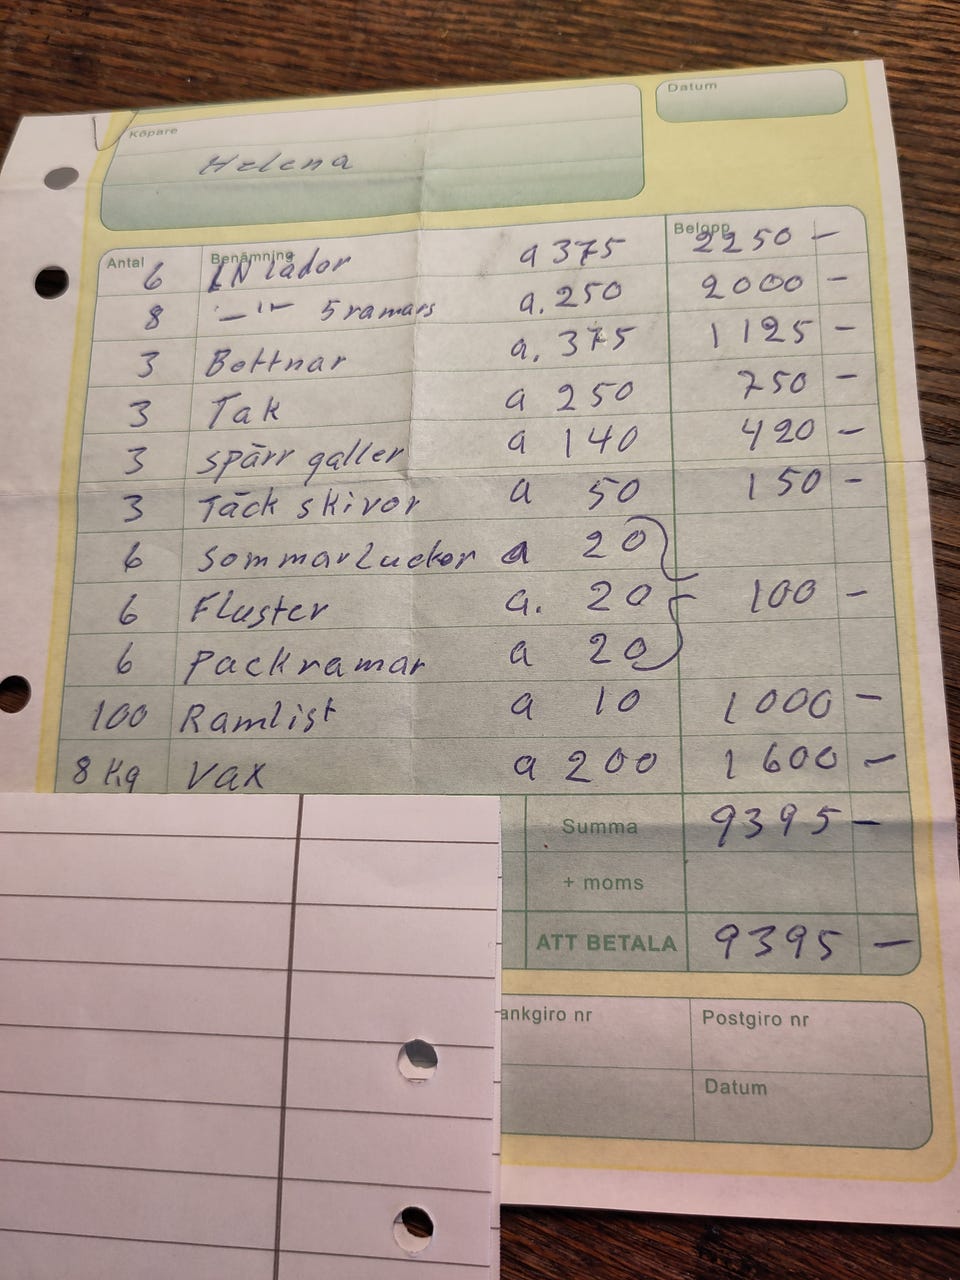 Köpare
Datum
Helena
Antal Benämning Belopp
6 LN lådor a 375 2250 -
8 -"- 5 ramars a. 250 2000 -
3 Bottnar a. 375 1125 -
3 Tak a 250 750 -
3 spärr galler a 140 420 -
3 Täck skivor a 50 150 -
6 Sommarluckor a 20
6 Fluster a. 20 100 -
6 Packramar a 20
100 Ramlist a 10 1000 -
8 Kg Vax a 200 1600 -
Summa 9395 -
+ moms
ATT BETALA 9395 -
ankgiro nr
Postgiro nr
Datum